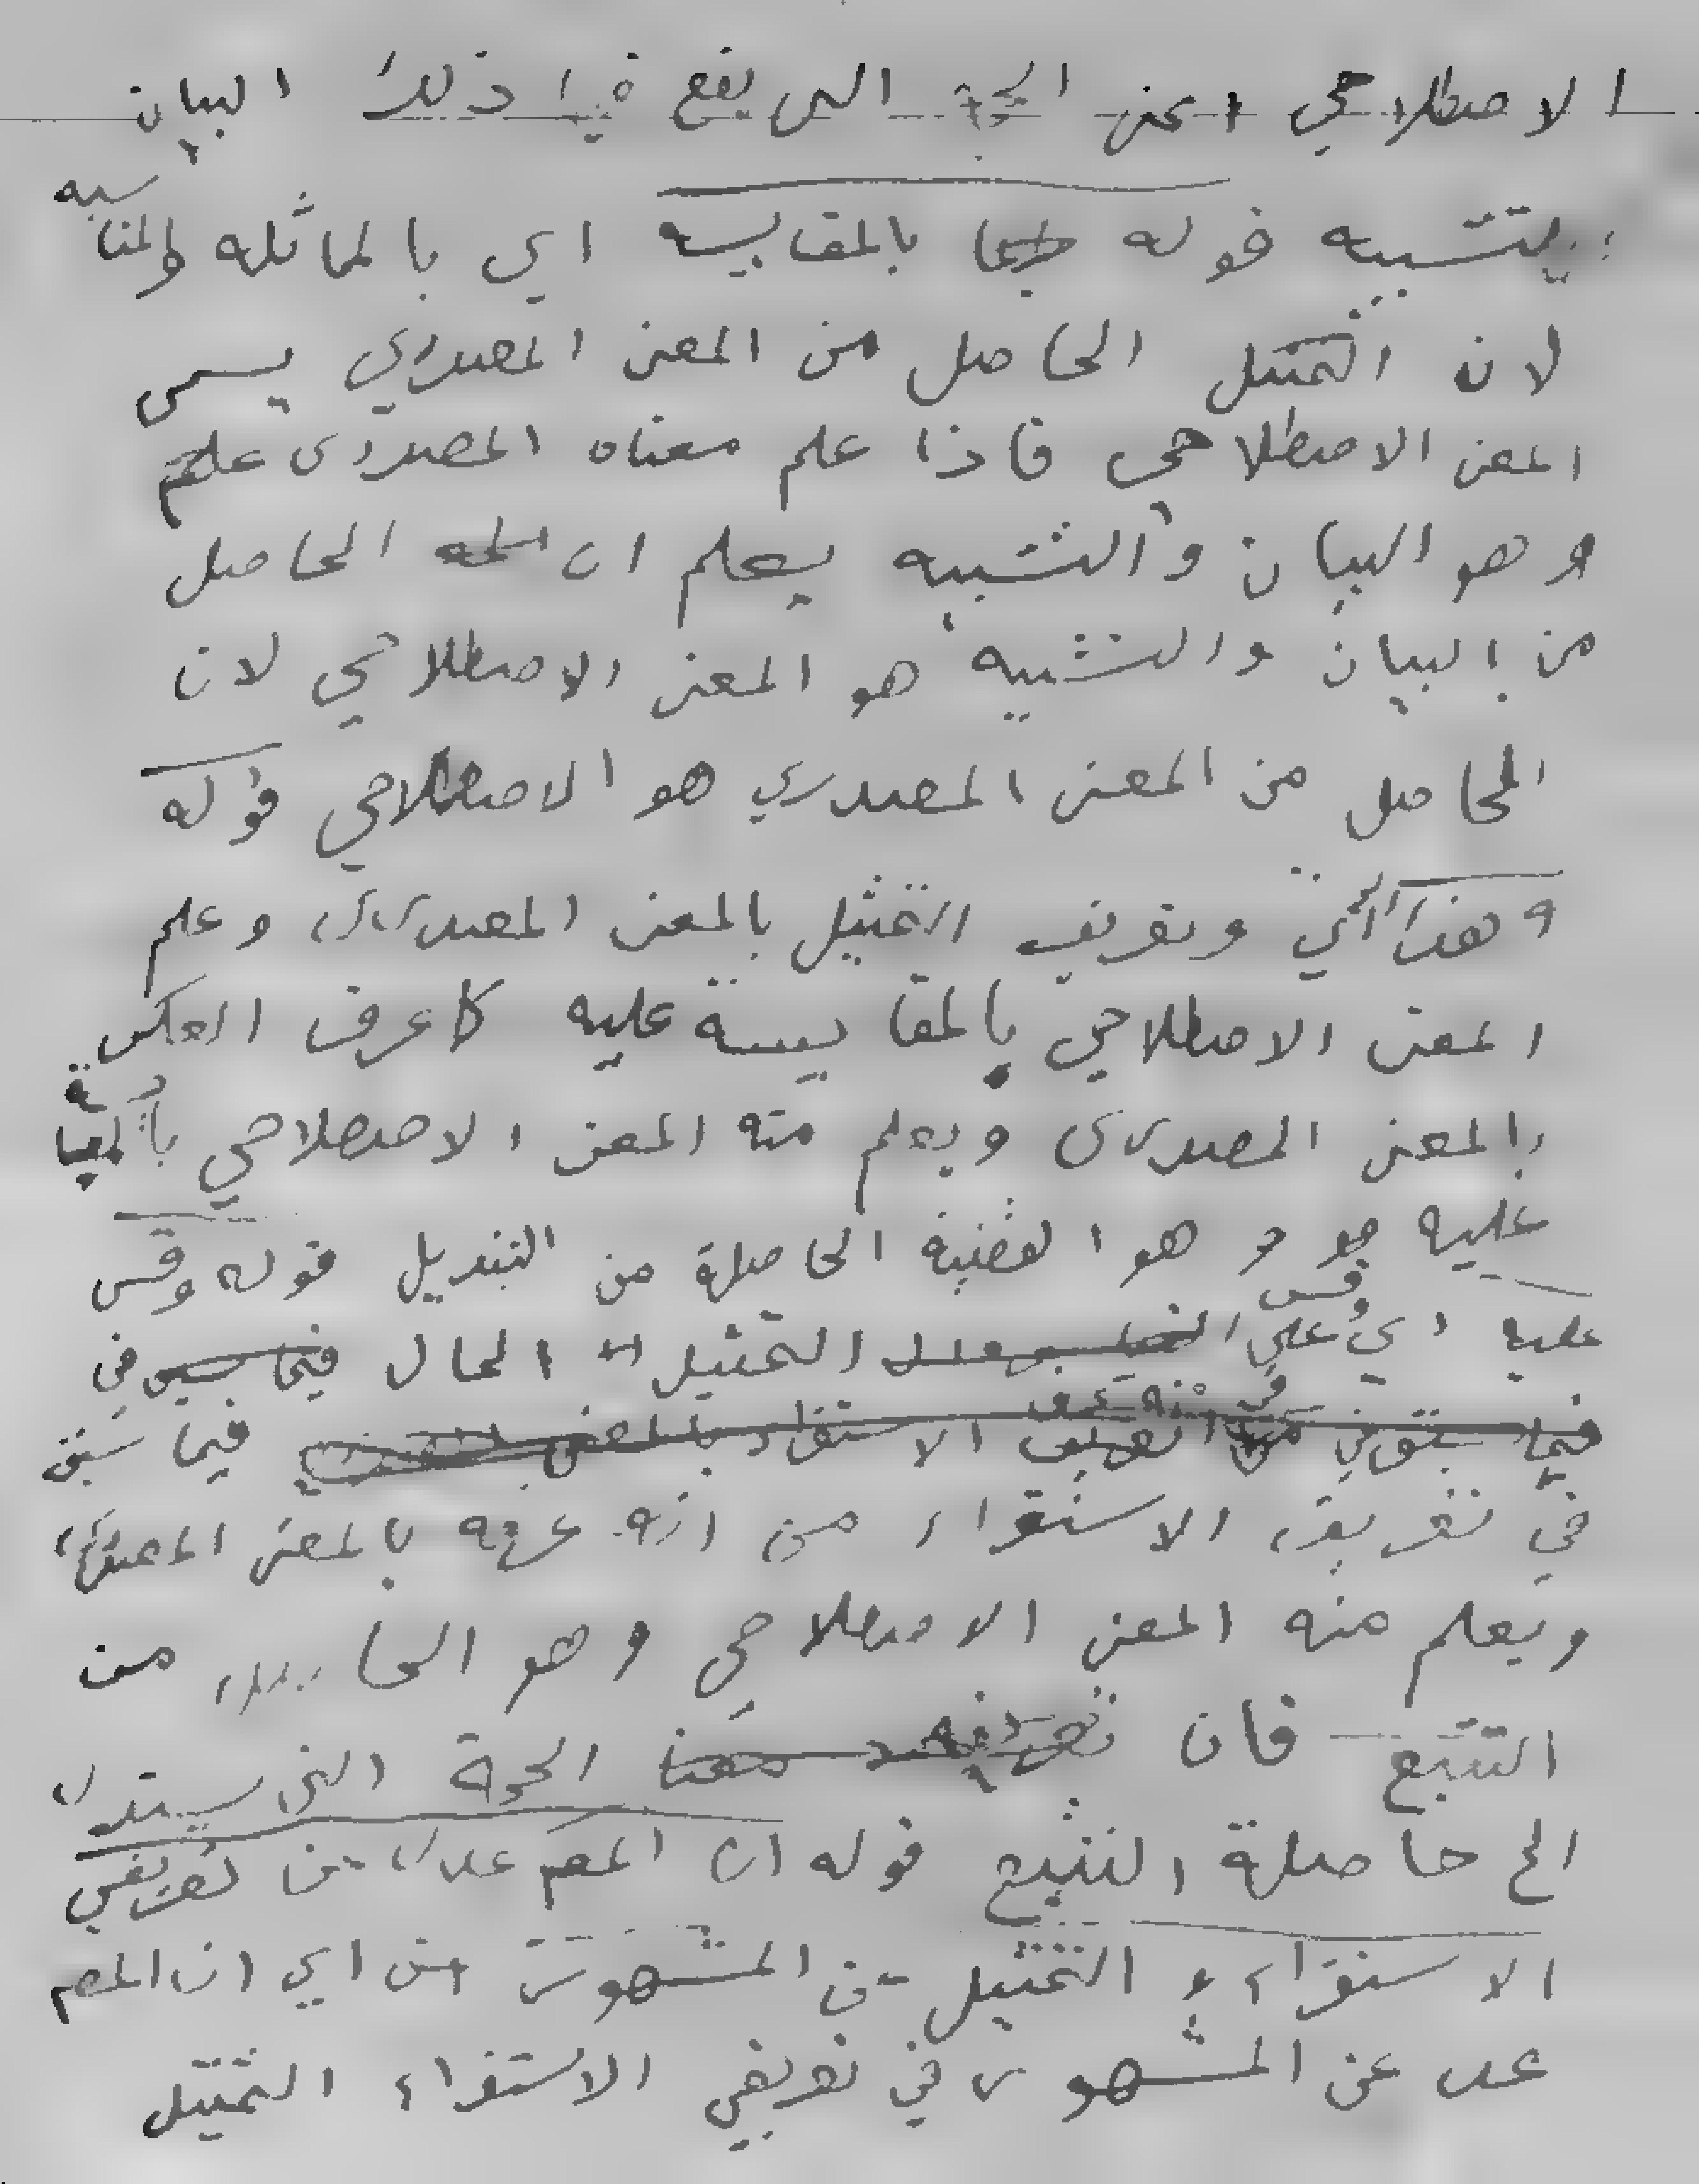 الاصطلاحي اعني الحجة التي يقع فيها ذلك البيان
التشبيه قوله بالمقايسه اي بالماثله والمناسبه
لان التمثيل الحاصل من المعنى المصدري يسمى
المعنى الاصطلاحي فاذا علم معناه المصدرى علم
وهو البيان والتشبيه يعلم ان الحاصل
من البيان والتشبيه هو المعنى الاصطلاحي لان
الحاصل من المعنى المصدري هو الاصطلاحي قوله
وهذا وتعريف التمثيل بالمعنى المصدرى وعلم
المعنى الاصطلاحي بالمقايسة عليه كما عرف العكس
بالمعنى المصدرى ويعلم منه المعنى الاصطلاحي بالمقايسة
عليه وهو القضية الحاصلة من التبديل قوله وقس
عليه اي وقس على التمثيل الحال في
فيما سبق في تعريف الاستقراء بالمعنى فيما سبق
في تعريف الاستقراء من انه عرفه بالمعنى المصدرى
ويعلم منه المعنى الاصطلاحي وهو الحاصل من
التتبع فان الحجة التي يستدل
الخ حاصلة التتبع قوله ان المصم عدل عن تعريفي
الاستقراء و التمثيل عن المشهور اي ان المصم
عدل عن المشهور في تعريفي الاستقراء التمثيل